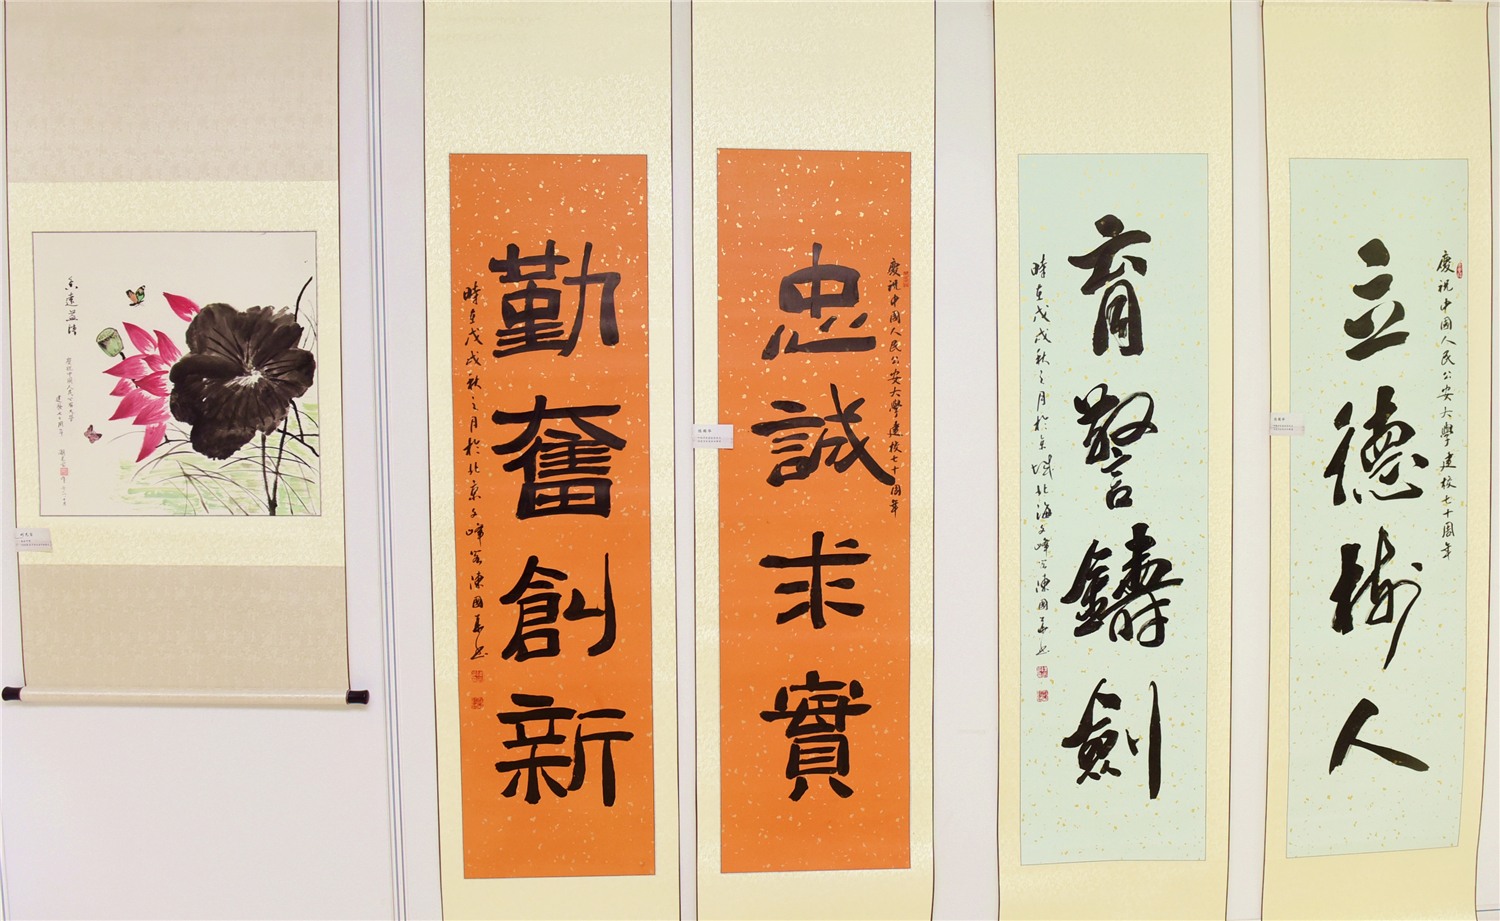 慶祝中國人民公安大學建校七十周年
立德樹人
育警鑄劍
時在戊戌秋之月於京城北海文峰
陳國
慶祝中國人民公安大學建校七十周年
忠誠求實
勤奮創新
時在戊戌秋之月於北京文峰
陳國
香遠益清
慶祝中國人民公安大學
建校七十周年